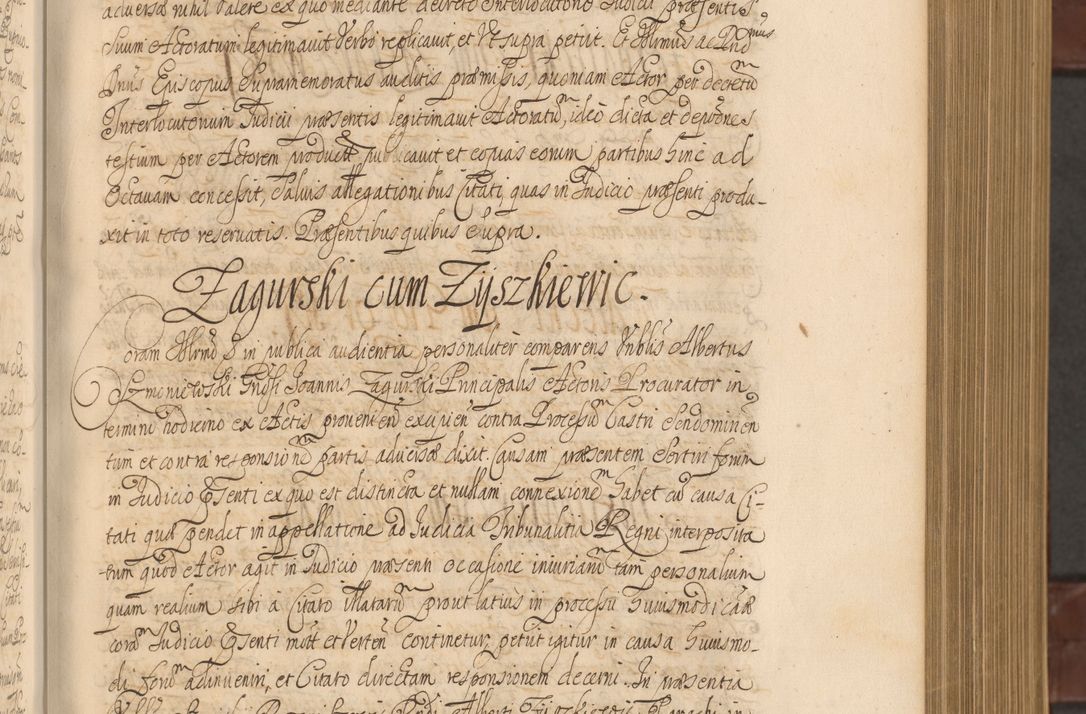 adversa nihil valere ex quo mediante decreto Interlocutorio Iudicii præsentis
suum Actoratum legitimavit verbo replicavit, et ut supra petiit. Et Illmus ac Rndmus
Dnus Episcopus supramemoratus auditis præmissis, quoniam Actor per decretum
Interlocutorium Iudicii præsentis legitimavit Actoratum, ideo dicta et depones
testium per Actorem product publicavit et copias eorum partibus hinc ad
Octavam concessit, salvis allegationibus Citati, quas in Iudicio præsenti produ-
xit in toto reservatis. Præsentibus quibus supra.
Zagurski cum Zyszkiewic.
Coram Illrmo D in publica audientia personaliter comparens Nobilis Albertus
Szmoniewski Gnosi Ioannis Zagurski Principalis Actoris Procurator in
termino hodierno ex Actis provenien excipien contra Processum Castri Sendominen
tum et contra responsionem partis adversæ dixit. Causam præsentem sortiri forum
in Iudicio Psenti ex quo est distincta et nullam connexionem habet cum causa Ci-
tati quæ pendet in appellatione ad Iudicia Tribunalitia Regni interposita
cum quod Actor agit in Iudicio præsenti occasione iniuriarum tam personalium
quam realium sibi a Citato illatarum prout latius in processu huiusmodi cæ
coram Iudicio Psenti mott et verten continetur, petiit igitur in causa huiusmo-
di forum adinveniri, et Citato directam responsionem decerni. In præsentia